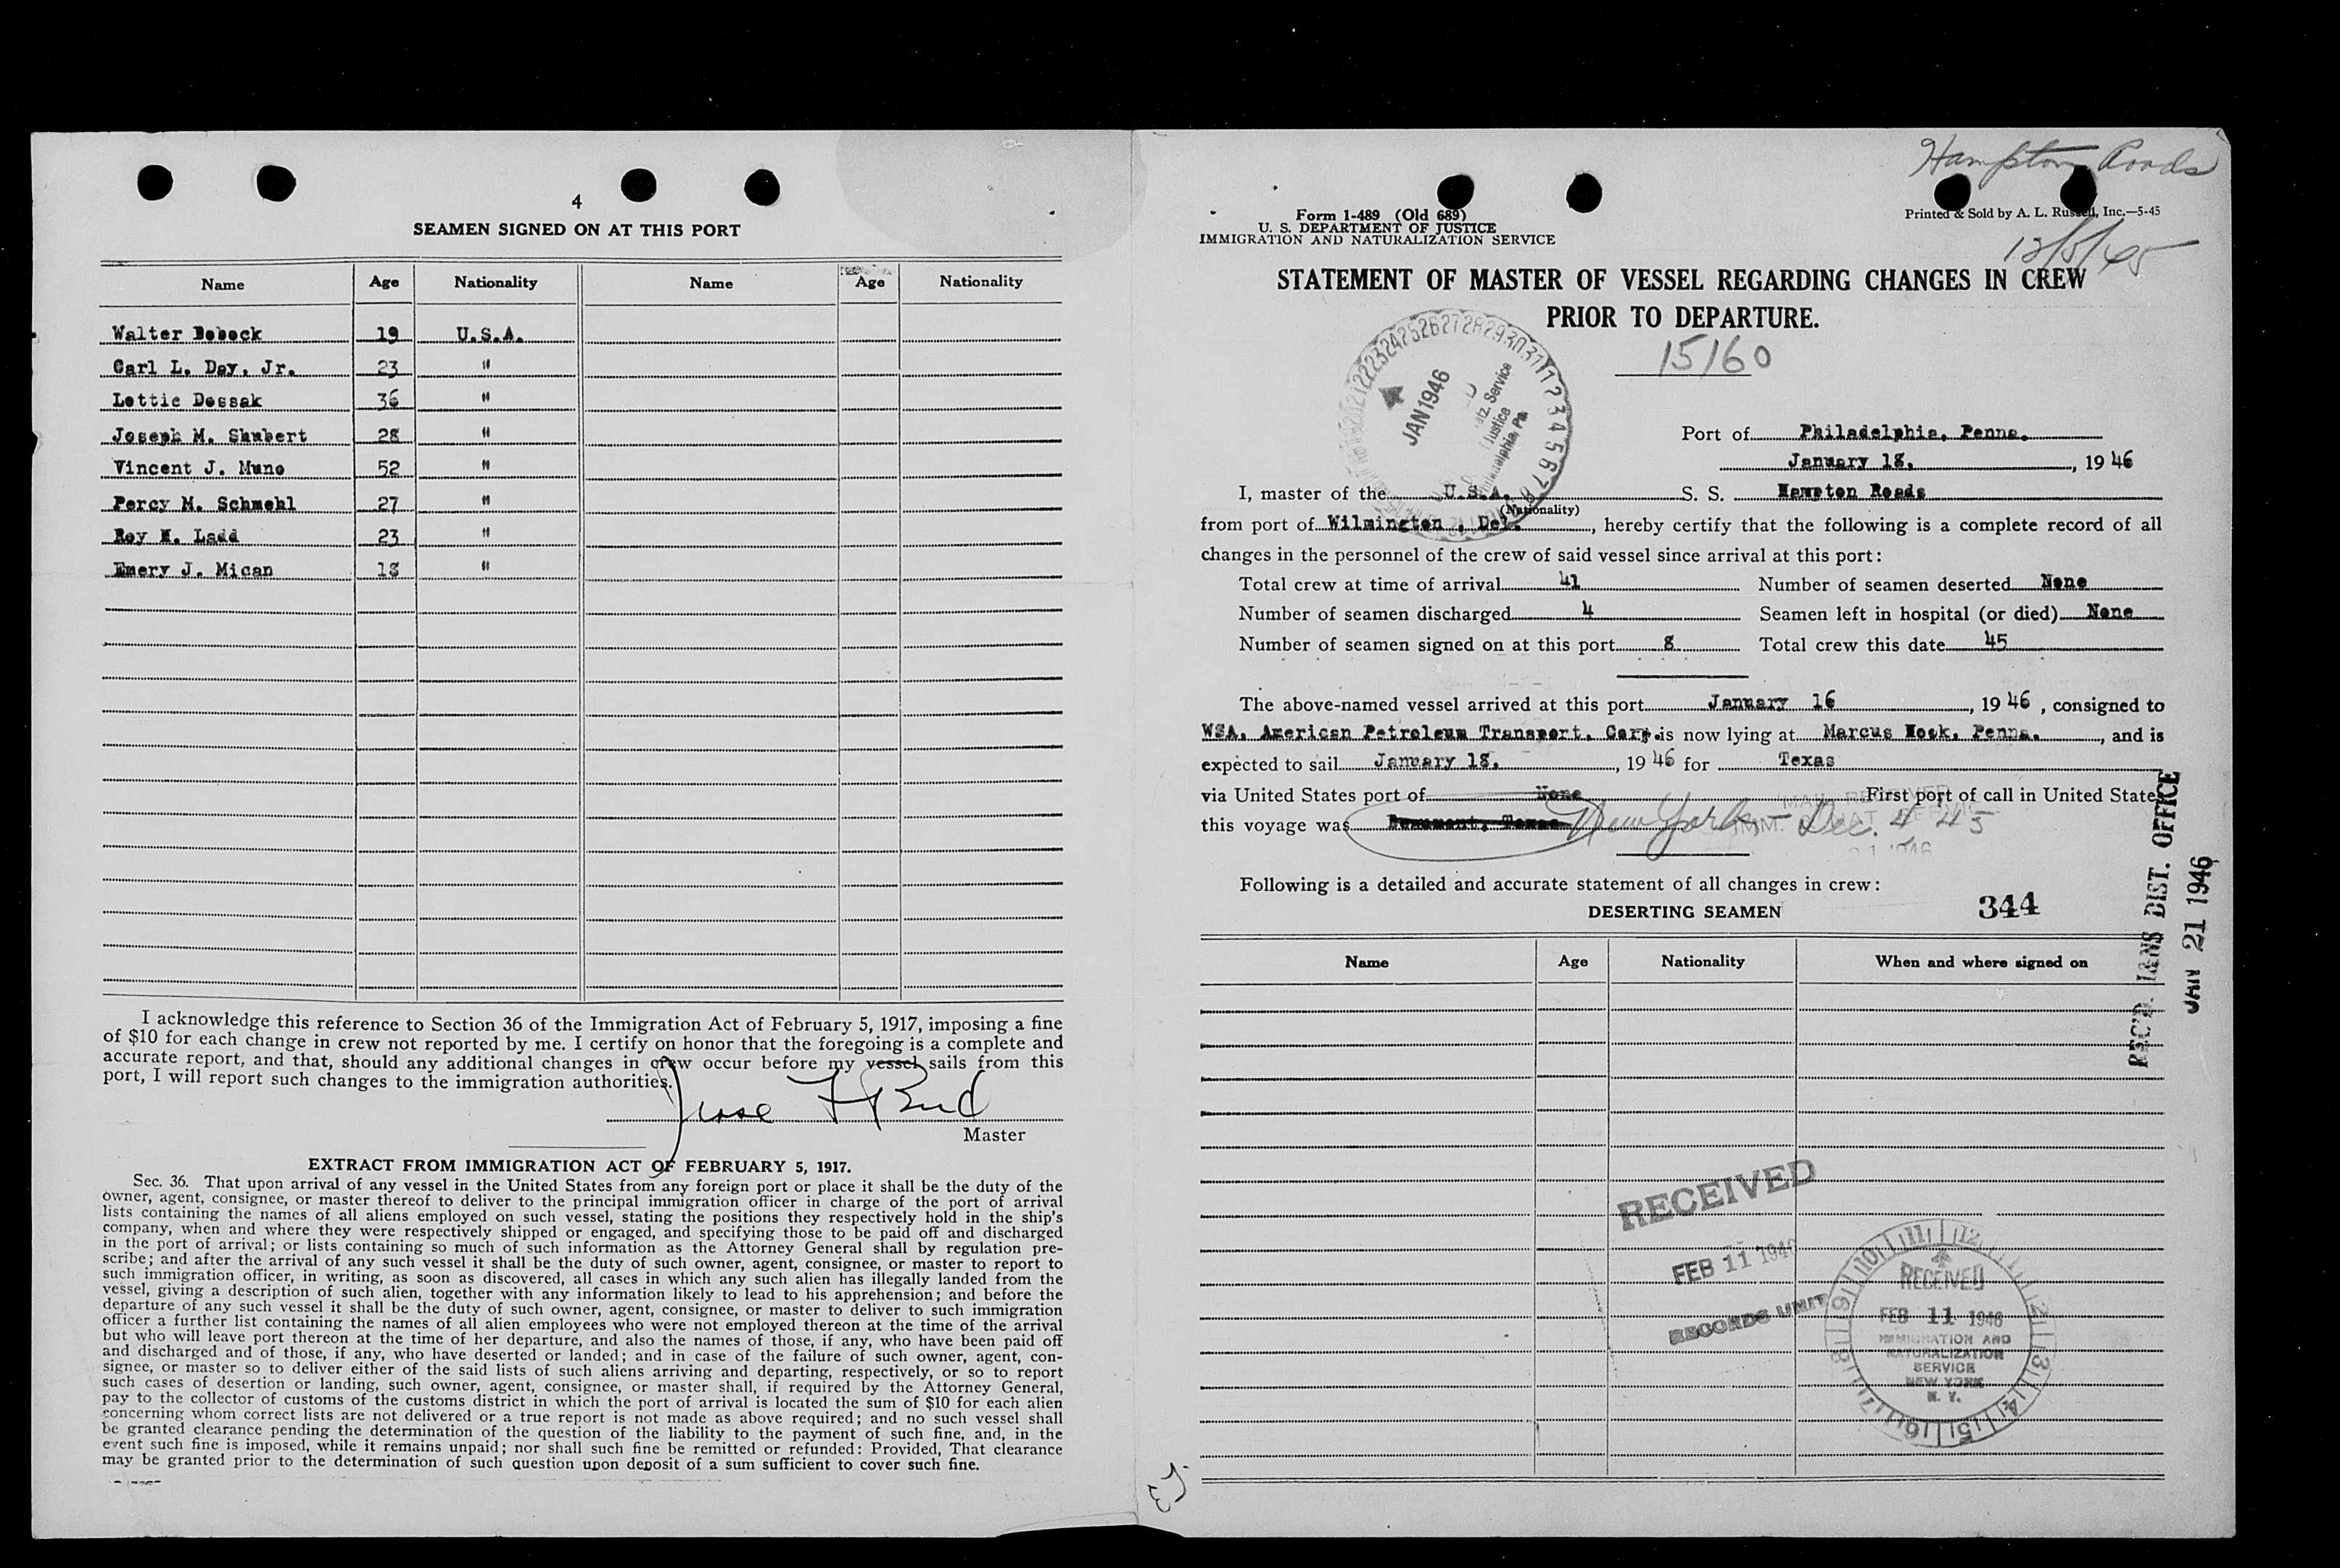 4
SEAMEN SIGNED ON AT THIS PORT
Name Age Nationality Name Age Nationality
Walter Bobock 19 U.S.A.
Carl L. Day, Jr. 23 "
Lottie Dossak 36 "
Joseph M. Shubert 28 "
Vincent J. Muno 52 "
Percy M. Schmehl 27 "
Roy H. Ladd 23 "
Emery J. Mican 18 "
I acknowledge this reference to Section 36 of the Immigration Act of February 5, 1917, imposing a fine
of $10 for each change in crew not reported by me. I certify on honor that the foregoing is a complete and
accurate report, and that, should any additional changes in crew occur before my vessel sails from this
port, I will report such changes to the immigration authorities.
Jesse
Master
EXTRACT FROM IMMIGRATION ACT OF FEBRUARY 5, 1917.
Sec. 36. That upon arrival of any vessel in the United States from any foreign port or place it shall be the duty of the
owner, agent, consignee, or master thereof to deliver to the principal immigration officer in charge of the port of arrival
lists containing the names of all aliens employed on such vessel, stating the positions they respectively hold in the ship's
company, when and where they were respectively shipped or engaged, and specifying those to be paid off and discharged
in the port of arrival; or lists containing so much of such information as the Attorney General shall by regulation pre-
scribe; and after the arrival of any such vessel it shall be the duty of such owner, agent, consignee, or master to report to
such immigration officer, in writing, as soon as discovered, all cases in which any such alien has illegally landed from the
vessel, giving a description of such alien, together with any information likely to lead to his apprehension; and before the
departure of any such vessel it shall be the duty of such owner, agent, consignee, or master to deliver to such immigration
officer a further list containing the names of all alien employees who were not employed thereon at the time of the arrival
but who will leave port thereon at the time of her departure, and also the names of those, if any, who have been paid off
and discharged and of those, if any, who have deserted or landed; and in case of the failure of such owner, agent, con-
signee, or master so to deliver either of the said lists of such aliens arriving and departing, respectively, or so to report
such cases of desertion or landing, such owner, agent, consignee, or master shall, if required by the Attorney General,
pay to the collector of customs of the customs district in which the port of arrival is located the sum of $10 for each alien
concerning whom correct lists are not delivered or a true report is not made as above required; and no such vessel shall
be granted clearance pending the determination of the question of the liability to the payment of such fine, and, in the
event such fine is imposed, while it remains unpaid; nor shall such fine be remitted or refunded: Provided, That clearance
may be granted prior to the determination of such question upon deposit of a sum sufficient to cover such fine.
Hampton Roads
Form 1-489 (Old 689)
U. S. DEPARTMENT OF JUSTICE
IMMIGRATION AND NATURALIZATION SERVICE
Printed & Sold by A. L. Russell, Inc.—5-45
12/5/45
STATEMENT OF MASTER OF VESSEL REGARDING CHANGES IN CREW
PRIOR TO DEPARTURE.
15160
JAN 1946
Port of Philadelphia, Penna.
January 18, 1946
I, master of the U.S.A. S. S. Hampton Roads
(Nationality)
from port of Wilmington, Del., hereby certify that the following is a complete record of all
changes in the personnel of the crew of said vessel since arrival at this port:
Total crew at time of arrival 41 Number of seamen deserted None
Number of seamen discharged 4 Seamen left in hospital (or died) None
Number of seamen signed on at this port 8 Total crew this date 45
The above-named vessel arrived at this port January 16, 1946, consigned to
WSA, American Petroleum Transport, Corp. is now lying at Marcus Hook, Penna., and is
expected to sail January 18, 1946 for Texas
via United States port of None First port of call in United States
this voyage was Beaumont, Texas New York - Dec. 4 45
Following is a detailed and accurate statement of all changes in crew:
DESERTING SEAMEN 344
Name Age Nationality When and where signed on
REC'D. I&NS DIST. OFFICE
JAN 21 1946
RECEIVED
FEB 11 1946
RECORDS UNIT
RECEIVED
FEB 11 1946
IMMIGRATION AND
NATURALIZATION
SERVICE
NEW YORK
N. Y.